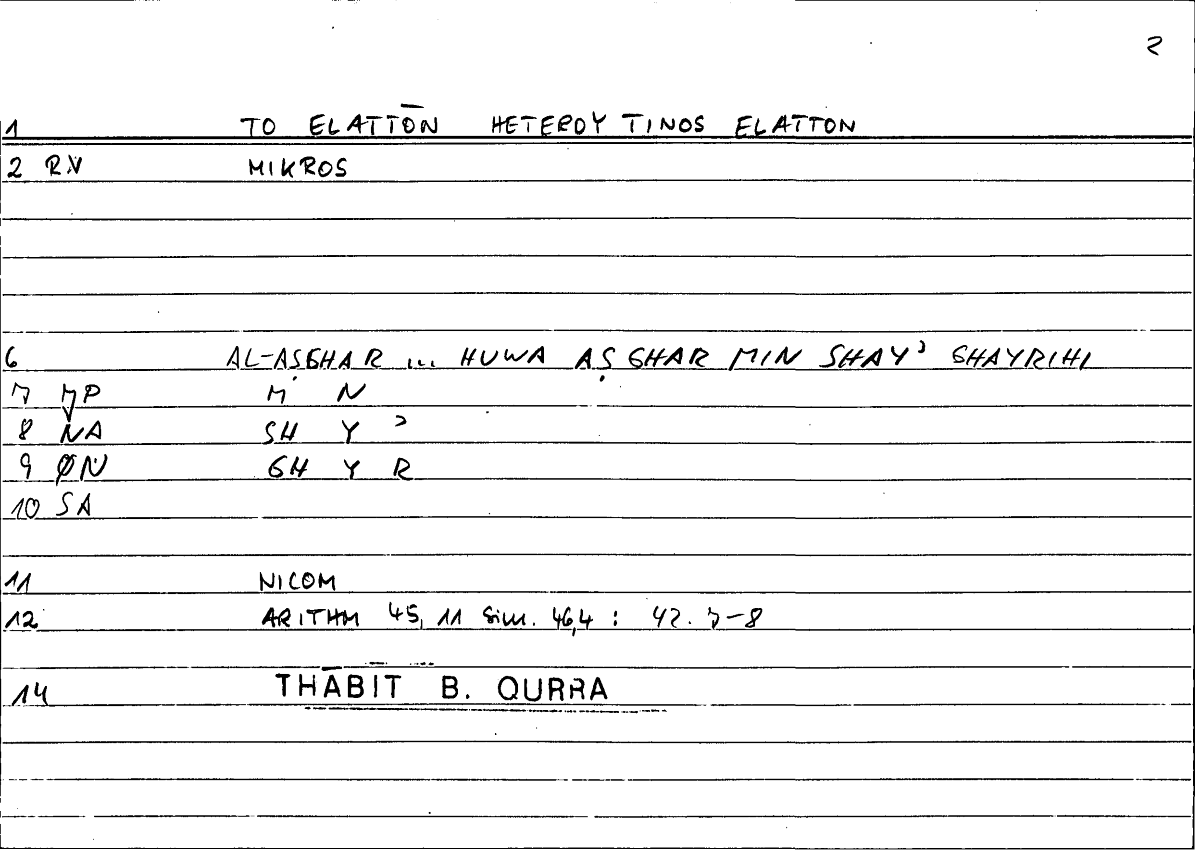 2
1 TO ELATTŌN HETEROY TINOS ELATTON
2 RN MIKROS
6 AL-AṢGHAR ... HUWA AṢGHAR MIN SHAYʾ GHAYRIHI
7 JP M N
8 NA SH Y ʾ
9 ØN GH Y R
10 SA
11 NICOM
12 ARITHM 45, 11 Sim. 46,4 : 42. 7-8
14 THĀBIT B. QURRA